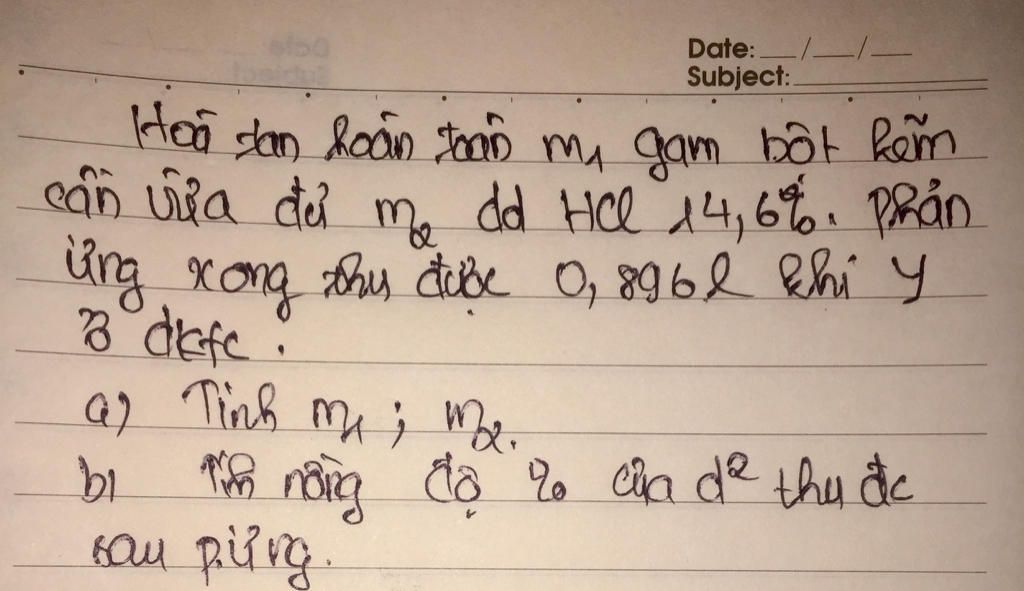 Date: __/__/__
Subject:
Hoà tan hoàn toàn m1 gam bột kẽm
cần vừa đủ m2 dd HCl 14,6%. Phản
ứng xong thu được 0,896l khí Y
ở đktc.
a) Tính m1; m2.
b) Tính nồng độ % của d² thu đc
sau p.ứng.